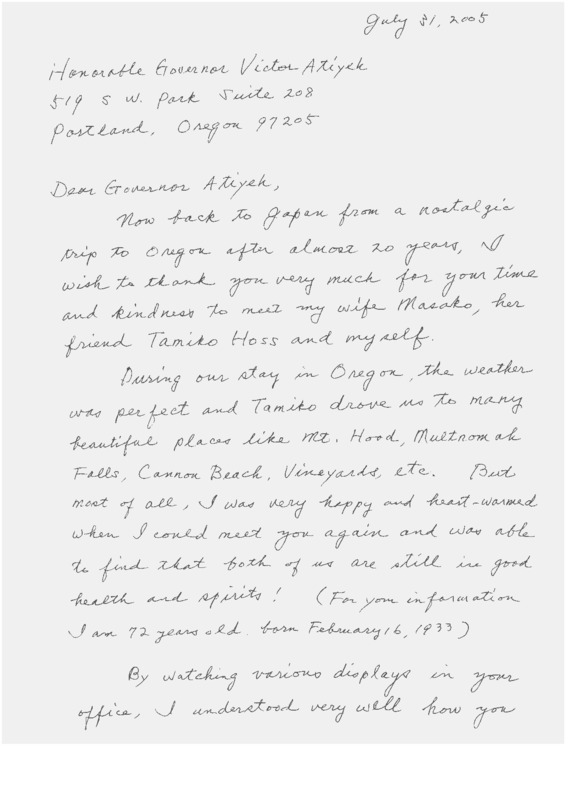 July 31, 2005
Honorable Governor Victor Atiyeh
519 S W. Park Suite 208
Portland, Oregon 97205
Dear Governor Atiyeh,
Now back to Japan from a nostalgic
trip to Oregon after almost 20 years, I
wish to thank you very much for your time
and kindness to meet my wife Masako, her
friend Tamiko Hoss and myself.
During our stay in Oregon, the weather
was perfect and Tamiko drove us to many
beautiful places like Mt. Hood, Multnomah
Falls, Cannon Beach, Vineyards, etc. But
most of all, I was very happy and heart-warmed
when I could meet you again and was able
to find that both of us are still in good
health and spirits! (For your information
I am 72 years old. born February 16, 1933)
By watching various displays in your
office, I understood very well how you